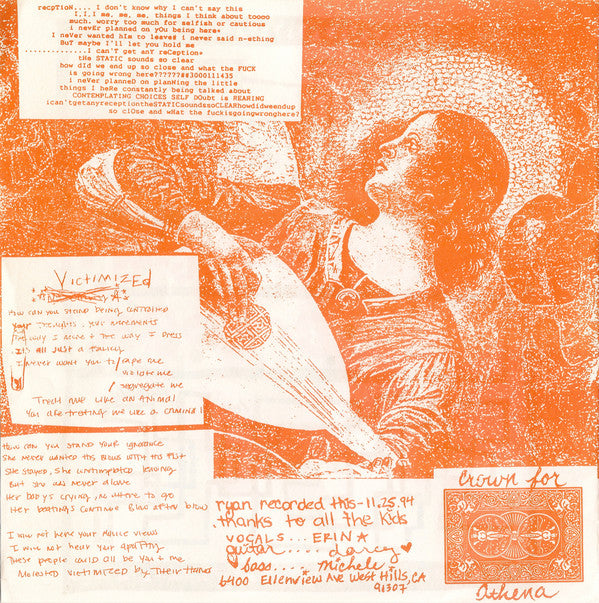 recpTioN.... I don't know why I can't say this
I.I.I me, me, me, things I think about toooo
much. worry too much for selfish or cautious
i nevEr planned on yOu being here*
I neVer wanted hIm to leaveS i never said n-ething
BuT maybe I'll let you hold me
..............I can'T get anY reCeption*
tHe STATIC sounds so clear
how dId we end up so close and what the FUCK
is going wrong here??????##3000111435
i neVer planneD on planNing the little
things I heRe constantly being talked about
CONTEMPLATING CHOICES SELF DOUbt is REARING
ican'tgetanyreceptiontheSTATICsoundssoCLEARhowdidweendup
so clOse and wHat the fuckisgoingwronghere?
VICTIMIZEd
How can you stand being controlled
your thoughts, your movements
The way I move + the way I dress
It's all just a fallacy
I never want you to/rape me
violate me
/segregate me
Treat me like an animal
You are treating me like a criminal
How can you stand your ignorance
She never wanted his blows with his fist
She stayed, she contemplated leaving
But she was never alone
Her baby's crying, no where to go
Her beatings continue Blow after blow
I will not hear your
I will not hear your apathy
These people could all be you + me
Molested victimized by their hands
ryan recorded this-11.25.94
thanks to all the kids
VOCALS... ERIN
guitar.... darcy
bass.... Michele
6400 Ellenview Ave West Hills, CA
91307
crown for
athena